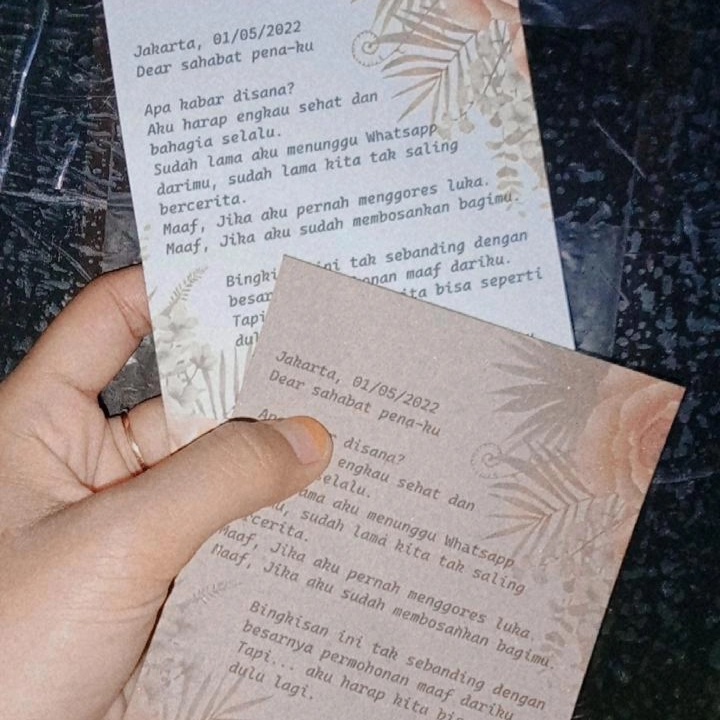 Jakarta, 01/05/2022
Dear sahabat pena-ku
Apa kabar disana?
Aku harap engkau sehat dan
bahagia selalu.
Sudah lama aku menunggu Whatsapp
darimu, sudah lama kita tak saling
bercerita.
Maaf, Jika aku pernah menggores luka.
Maaf, Jika aku sudah membosankan bagimu.
ini tak sebanding dengan
maaf dariku.
bisa seperti
Jakarta, 01/05/2022
Dear sahabat pena-ku
disana?
engkau sehat dan
aku menunggu Whatsapp
sudah lama kita tak saling
Maaf, Jika aku pernah menggores luka.
Maaf, Jika aku sudah membosankan bagimu.
Bingkisan ini tak sebanding dengan
besarnya permohonan maaf dariku.
Tapi... aku harap kita
dulu lagi.